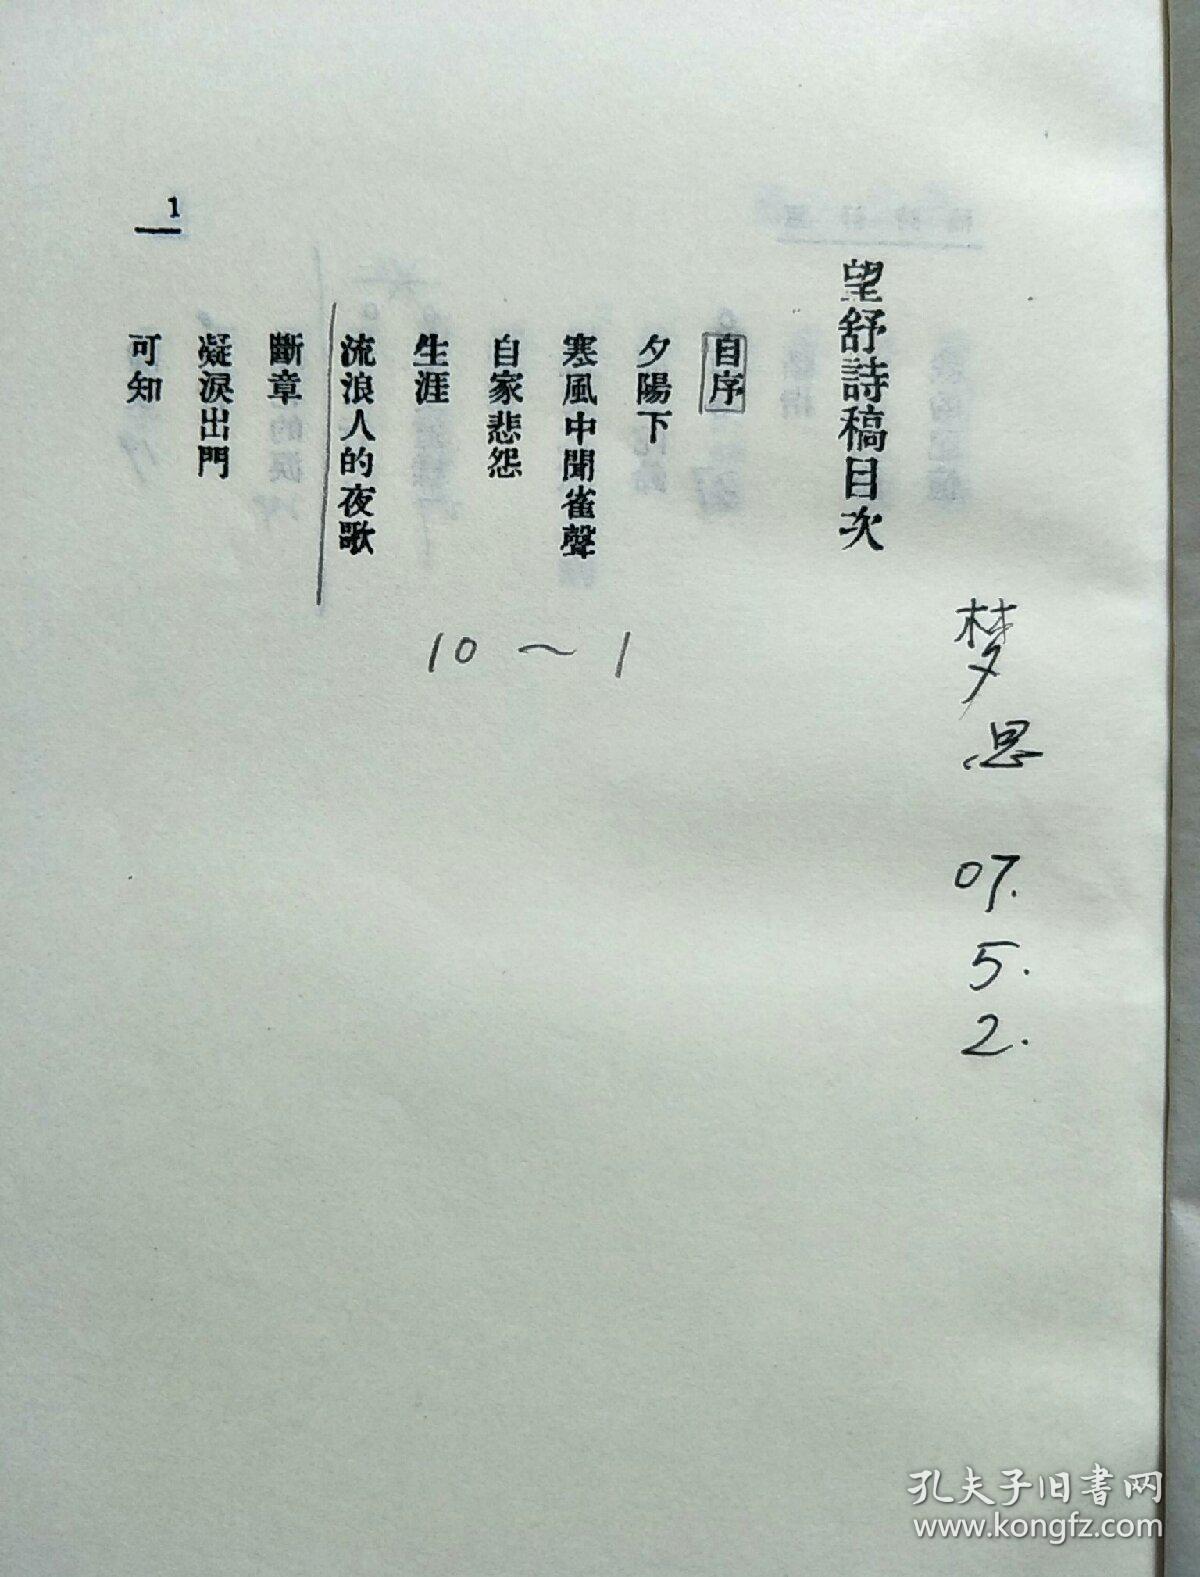 望舒詩稿目次
自序
夕陽下
寒風中聞雀聲
自家悲怨
生涯
流浪人的夜歌
斷章
凝淚出門
可知
1
10～1
梦思 07.5.2.
孔夫子旧书网
www.kongfz.com